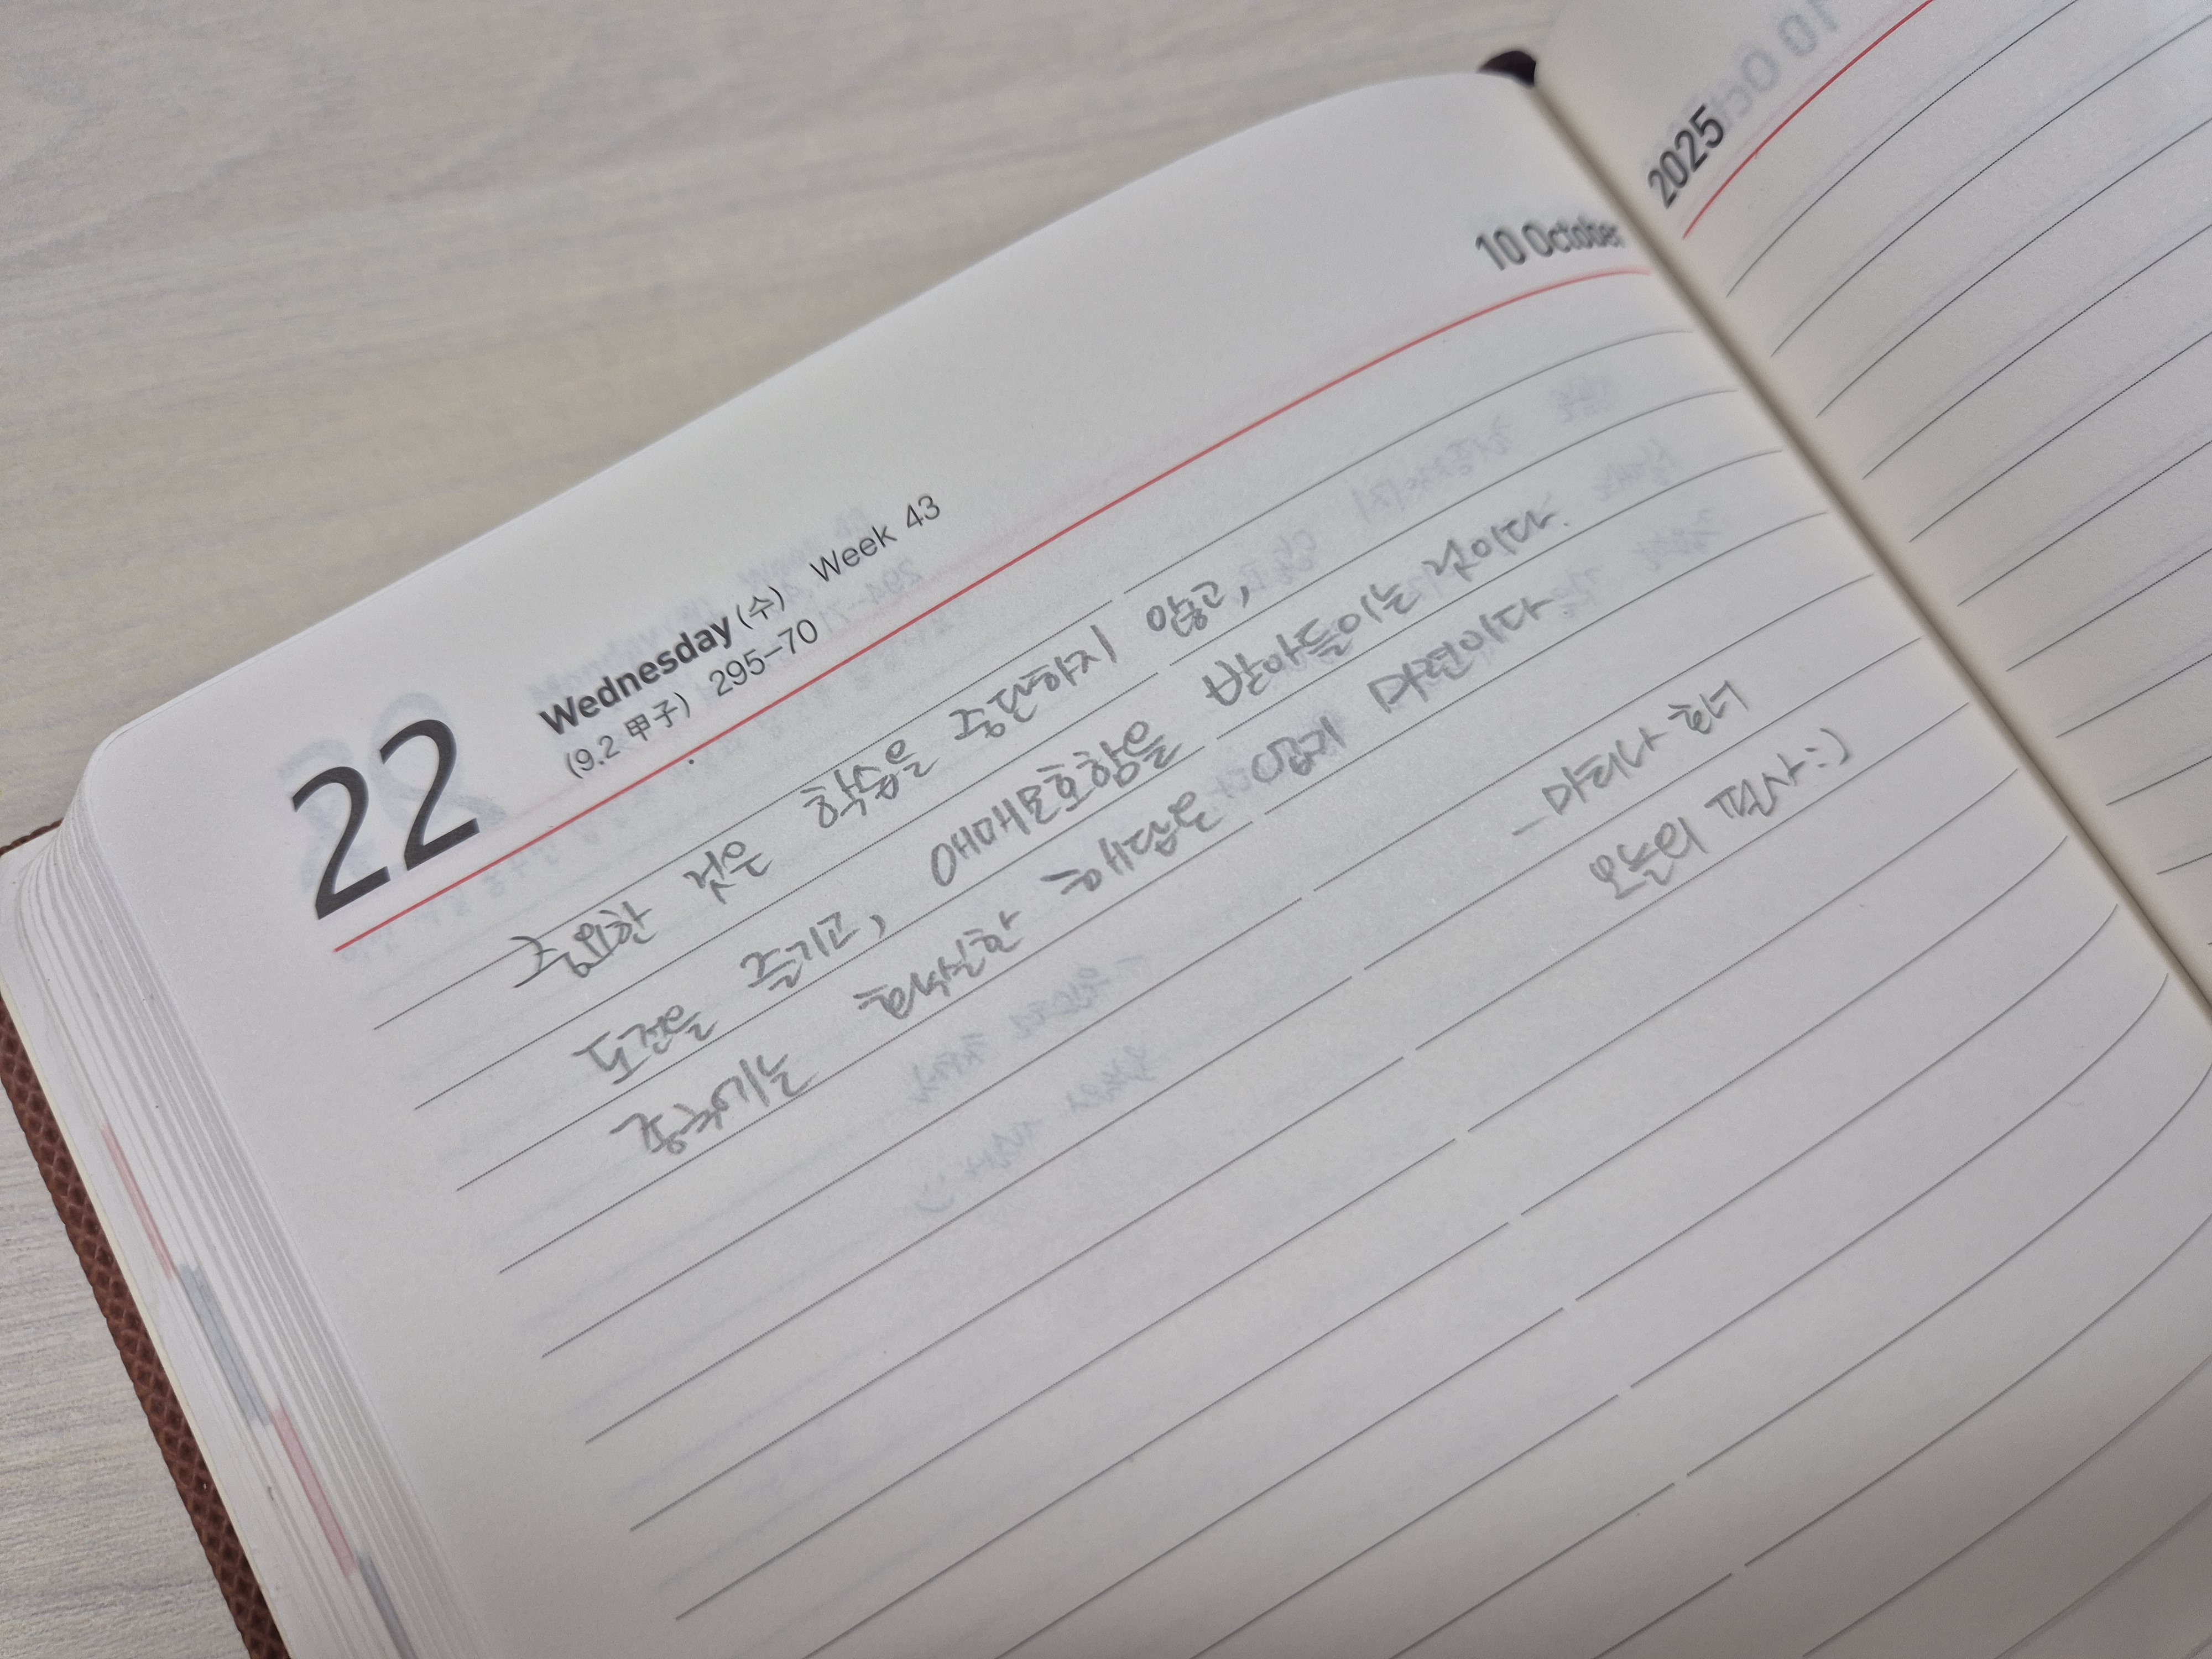 2025
10 October
22 Wednesday (수) Week 43
(9.2 甲子) 295-70
중요한 것은 학습을 중단하지 않고,
도전을 즐기고, 애매모호함을 받아들이는 것이다.
종국에는 확실한 해답은 없게 마련이다.
- 마티나 호너
오늘의 필사 :)